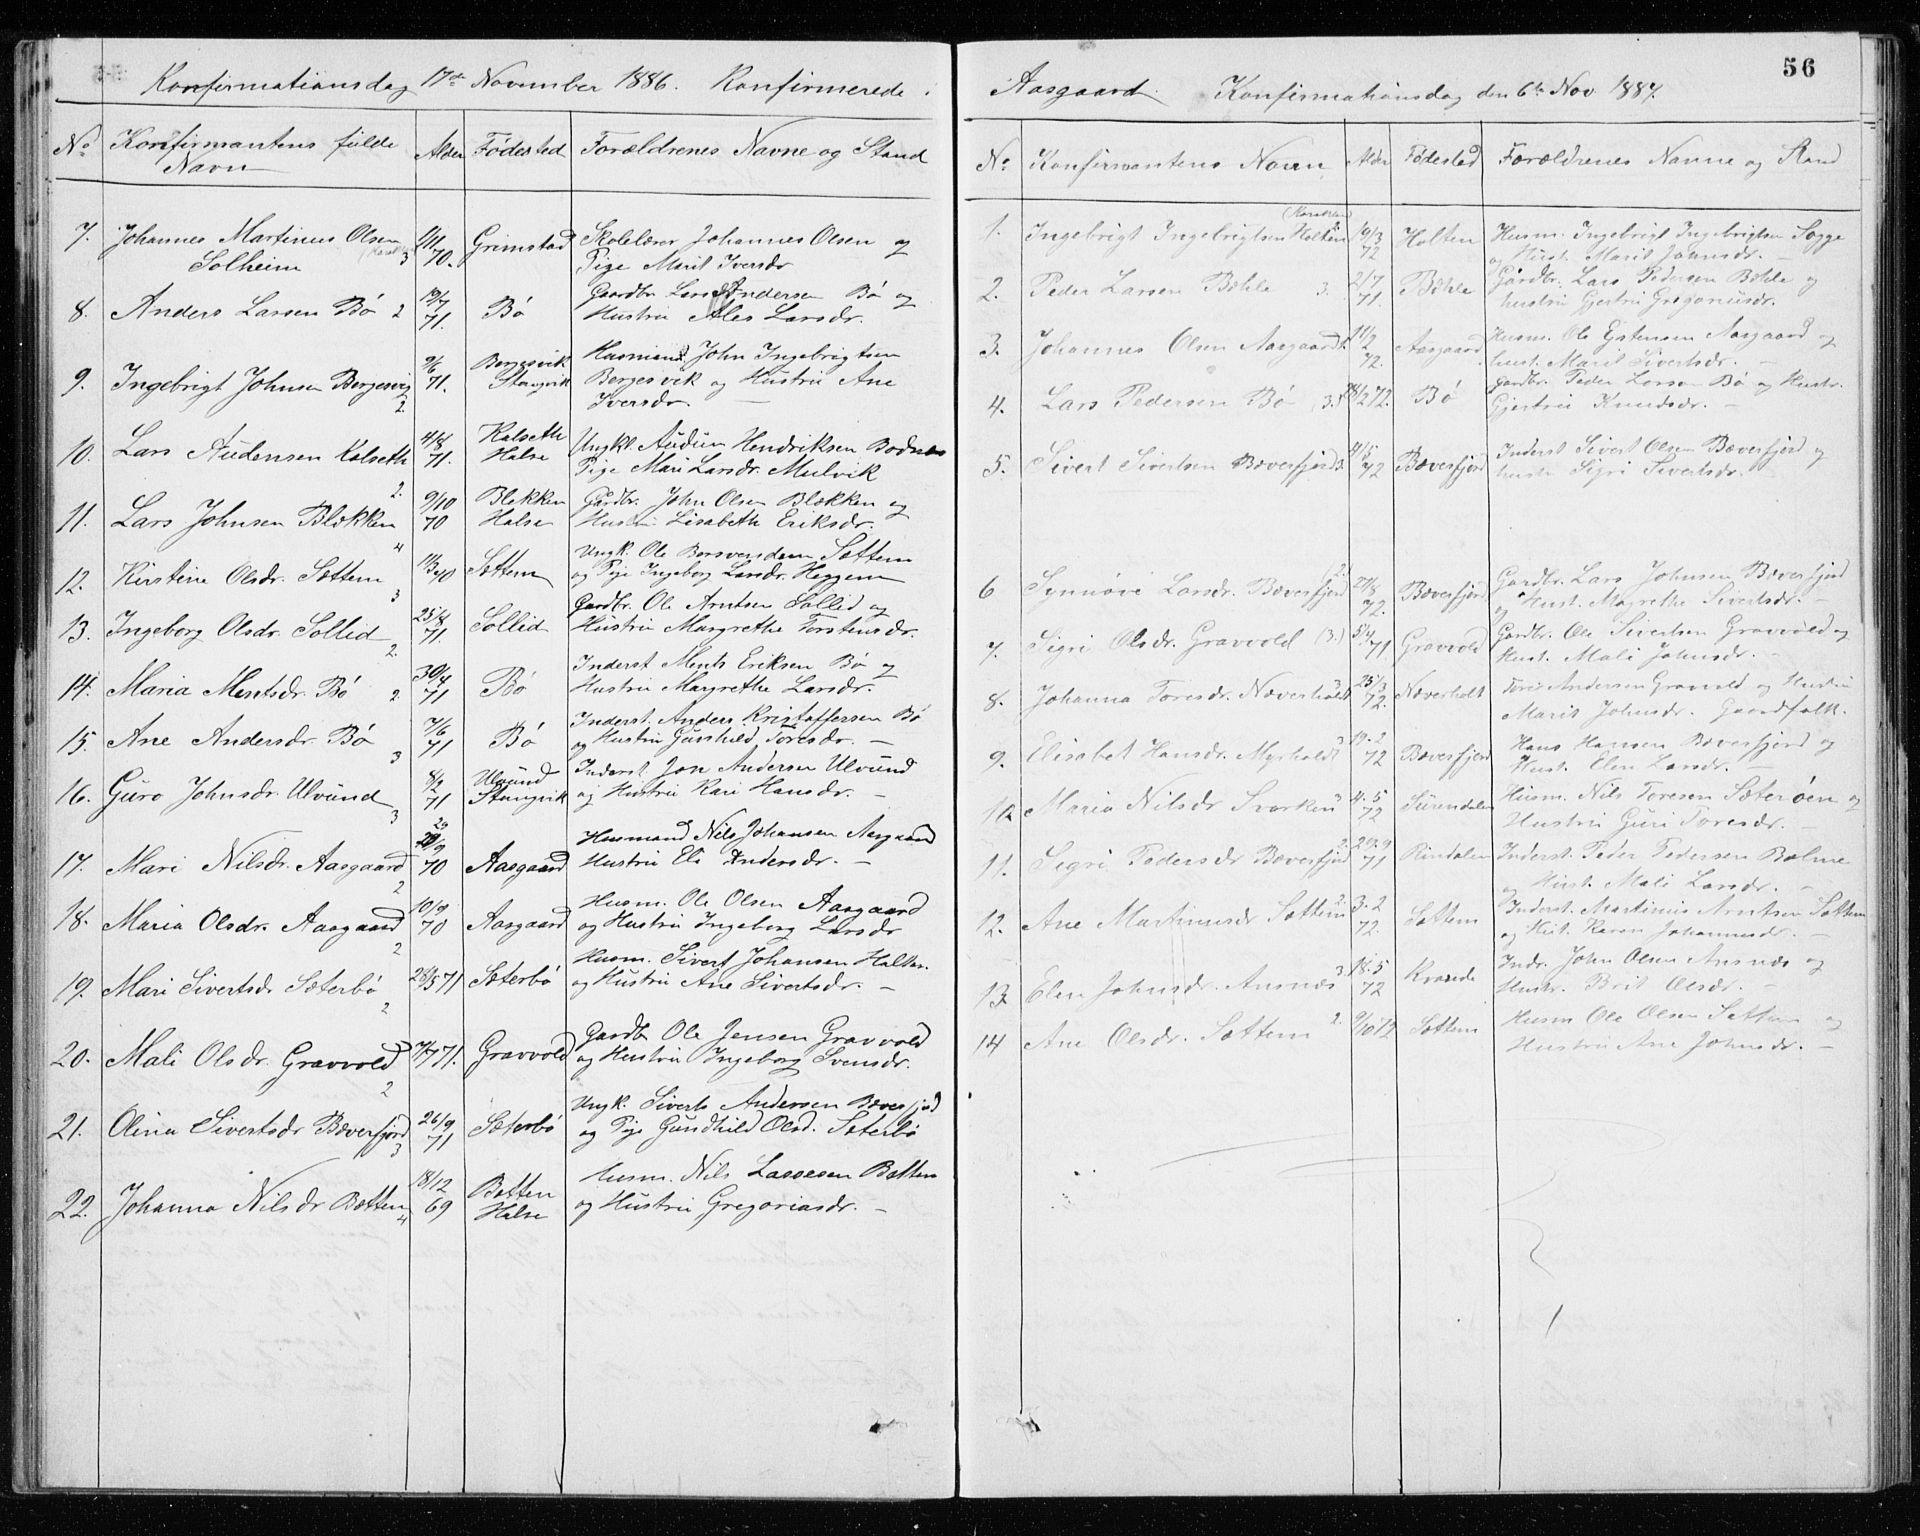 56
Konfirmationsdag 17de November 1886. Konfirmerede i
No Konfirmantens fulde Navn Alder Födested Forældrenes Navne og Stand
7. Johannes Martinus Olsen 1/11 Grimstad Skolelærer Johannes Olsen og
Solheim 3 70. Pige Marit Iversdr
8. Anders Larsen Bö 2 19/7 71. Bö Gaardbr Lars Andersen Bö og
Hustru Ales Larsdr.
9. Ingebrigt Johnsen Bergesvig 2. 9/6 71. Bergesvik Stangvik Husmand John Ingebrigtsen
Bergesvik og Hustru Ane
Iversdr. —
10. Lars Audensen Kalseth 2. 4/8 71. Kalseth Halse Ungkl. Audun Hendriksen Bodnes
Pige Mari Larsdr. Mulvik
11. Lars Johnsen Blækken 4 9/10 70 Blekken Halse Gårdbr. John Olsen Blækken og
Hustru Lisabeth Eriksdr.
12. Kirstine Olsdr. Sættem 3 70 Settem Ungk. Ole Sættem
og Pige Ingeborg Larsdr. Heggem
13. Ingeborg Olsdr. Sollid 2. 25/8 71. Sollid Gardbr. Ole Arntsen Sollid og
Hustru Margrethe Torstensdr.
14. Maria Mentsdr. Bö 2. 30/4 71 Bö Inderst Ments Eriksen Bö og
Hustru Margrethe Larsdr.
15. Ane Andersdr. Bö 3 7/6 71 Bö Inderst. Anders Kristoffersen Bö
og Hustru Gunhild Toresdr. —
16. Guro Johnsdr. Ulvund 3 8/2 71 Ulvund Stangvik Inderst Jon Andersen Ulvund
og Hustru Kari Hansdr. —
17. Mari Nilsdr. Aasgaard 2 29/9 70 Aasgaard Husmand Nils Johansen Aasgaard
Hustru Eli Andersdr. —
18. Maria Olsdr. Aasgaard 2 10/9 70 Aasgaard Husm. Ole Olsen Aasgaard
og Hustru Ingeborg Larsdr
19. Mari Sivertsdr Sæterbö 2 28/5 71 Sæterbö Husm. Sivert Johansen Holten.
og Hustru Ane Sivertsdr. —
20. Mali Olsdr. Gravvold 2 71. Gravvold Gardbr Ole Jensen Gravvold
og Hustru Ingeborg Svensdr.
21. Olina Sivertsdr Bæverfjord 3 26/9 71 Sæterbö Ungk. Siverts Andersen Bæverfjord
og Pige Gundhild Olsd. Sæterbö
22. Johanna Nilsdr Bætten 4 18/12 69 Batten Halse Husm. Nils Lassesen Batten
og Hustru Gregoriasdr. —
Aasgaard. Konfirmationsdag den 6te Nov. 1887.
No. Konfirmantens Navn Alder Födested Forældrenes Navne og Stand
1. Ingebrigt Ingebrigtsen Holten 16/3 72 Holten Husm. Ingebrigt Ingebrigtsen Sogge
og Hust. Marit Johnsdr. —
2. Peder Larsen Bæhle 3. 2/7 71. Bæhle Gårdbr. Lars Pedersen Bæhle og
hustru Gjertru Gregoriusdr.
3. Johannes Olsen Aasgaard 11/2 72. Aasgaard Husm. Ole Estensen Aasgaard og
hust. Marit Sivertsdr. —
4. Lars Pedersen Bö (3.) 18/2 72. Bö Gardbr. Peder Larsen Bö og Hustr.
Gjertru Knudsdr. —
5. Sivert Sivertsen Bæverfjord 3. 72 Bæverfjord Inderst Sivert Olsen Bæverfjord og
hustr Sigri Sivertsdr. —
6 Synnöve Larsdr. Bæverfjord 2. 20/8 72. Bæverfjord Gardbr. Lars Johnsen Bæverfjord
og Hust. Magrethe Sivertsdr. —
7. Sigri Olsdr. Gravvold (3.) 5/4 71 Gravvold Gardbr. Ole Sivertsen Gravvold og
Hust. Mali Johnsdr. —
8. Johanna Toresdr. Næverholt 3 25/3 72. Næverholt Tore Andersen Gravvold og Hustru
Marit Johnsdr. Gaardfolk.
9. Elisabet Hansdr. Myrholdt 3 19.2 72 Bæverfjord Hans Hansen Bæverfjord og
Hust. Elen Larsdr. —
10 Maria Nilsdr Svarken 3 4.5 72 Surendalen Husm. Nils Toresen Sæteröen og
Hustru Guri Toresdr. —
11. Sigri Pedersdr Bæverfjord 2. 29.9 71 Rindalen Inderst. Peder Pedersen Bolme
og Hust. Mali Larsdr. —
12. Ane Martinusdr Sættem 2. 3.2 72. Sættem Inderst. Martinus Arntsen Sættem
og Hust. Karen Johannesdr. —
13 Elen Johnsdr. Ansnæs 3. 18.5 72 Kvande Indr. John Olsen Ansnæs og
Hustr. Brit Olsdr. —
14 Ane Olsdr. Sættem 2. 9/10 72 Sættem Husm Ole Olsen Sættem og
Hustru Ane Johnsdr. —